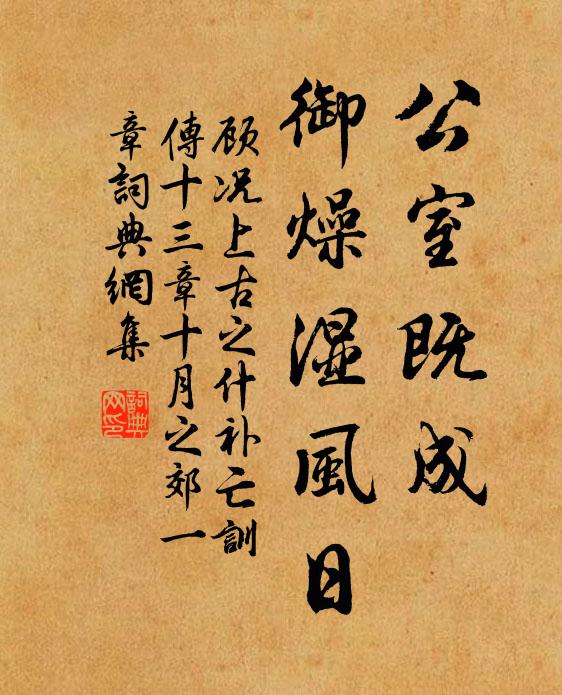 公室既成
御燥湿風日
顾况上古之什补亡訓
傳十三章十月之郊一
章詞典網集
詞典
网印